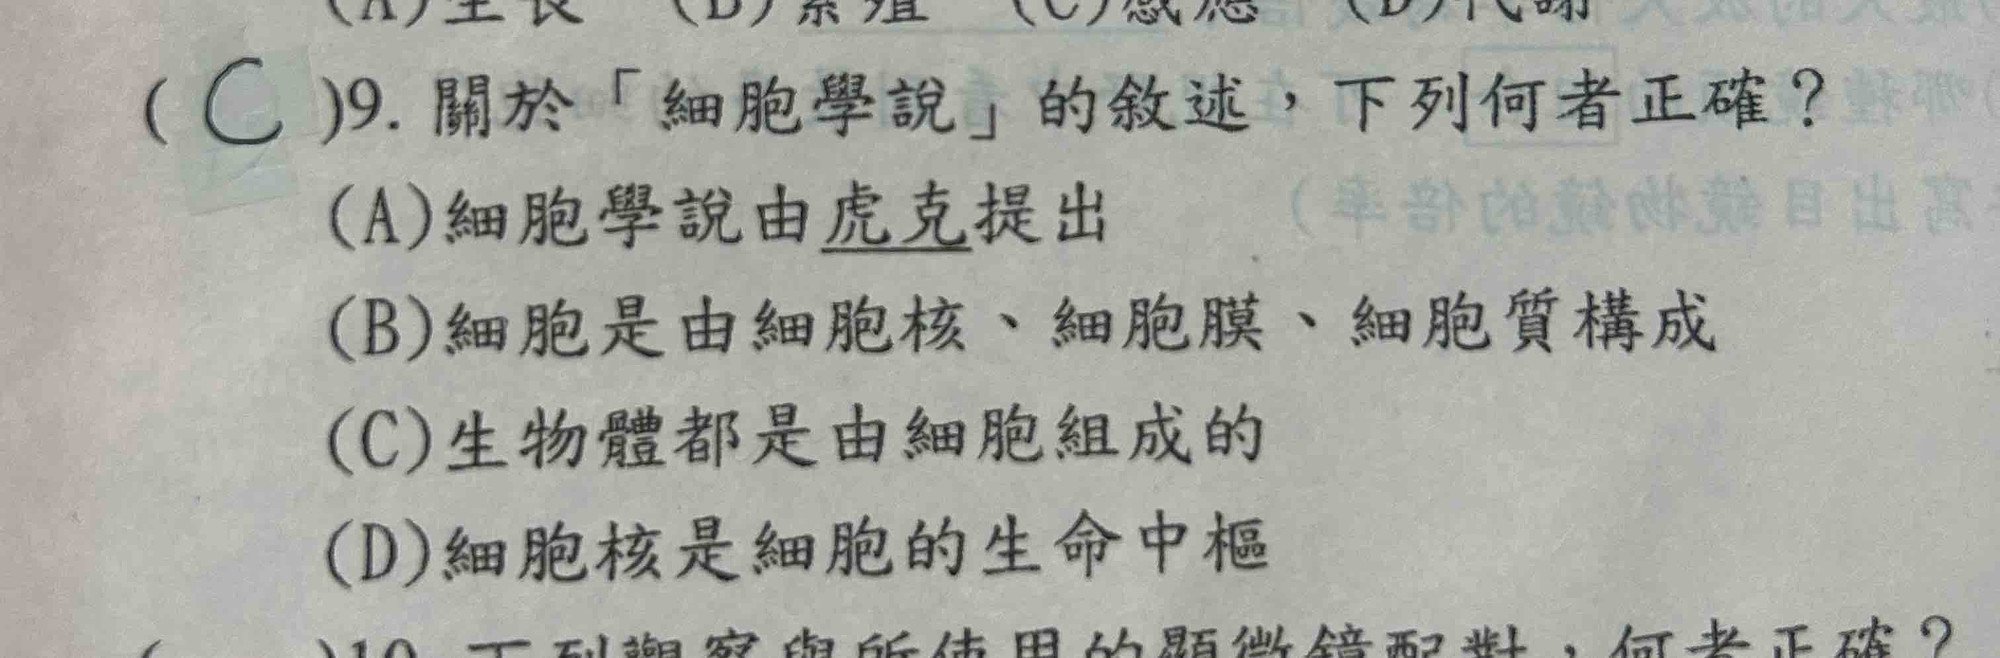 (A)生長 (B)繁殖 (C)感應 (D)代謝
( C )9. 關於「細胞學說」的敘述，下列何者正確？
(A)細胞學說由虎克提出
(B)細胞是由細胞核、細胞膜、細胞質構成
(C)生物體都是由細胞組成的
(D)細胞核是細胞的生命中樞
( )10. 下列觀察與所使用的顯微鏡配對，何者正確？